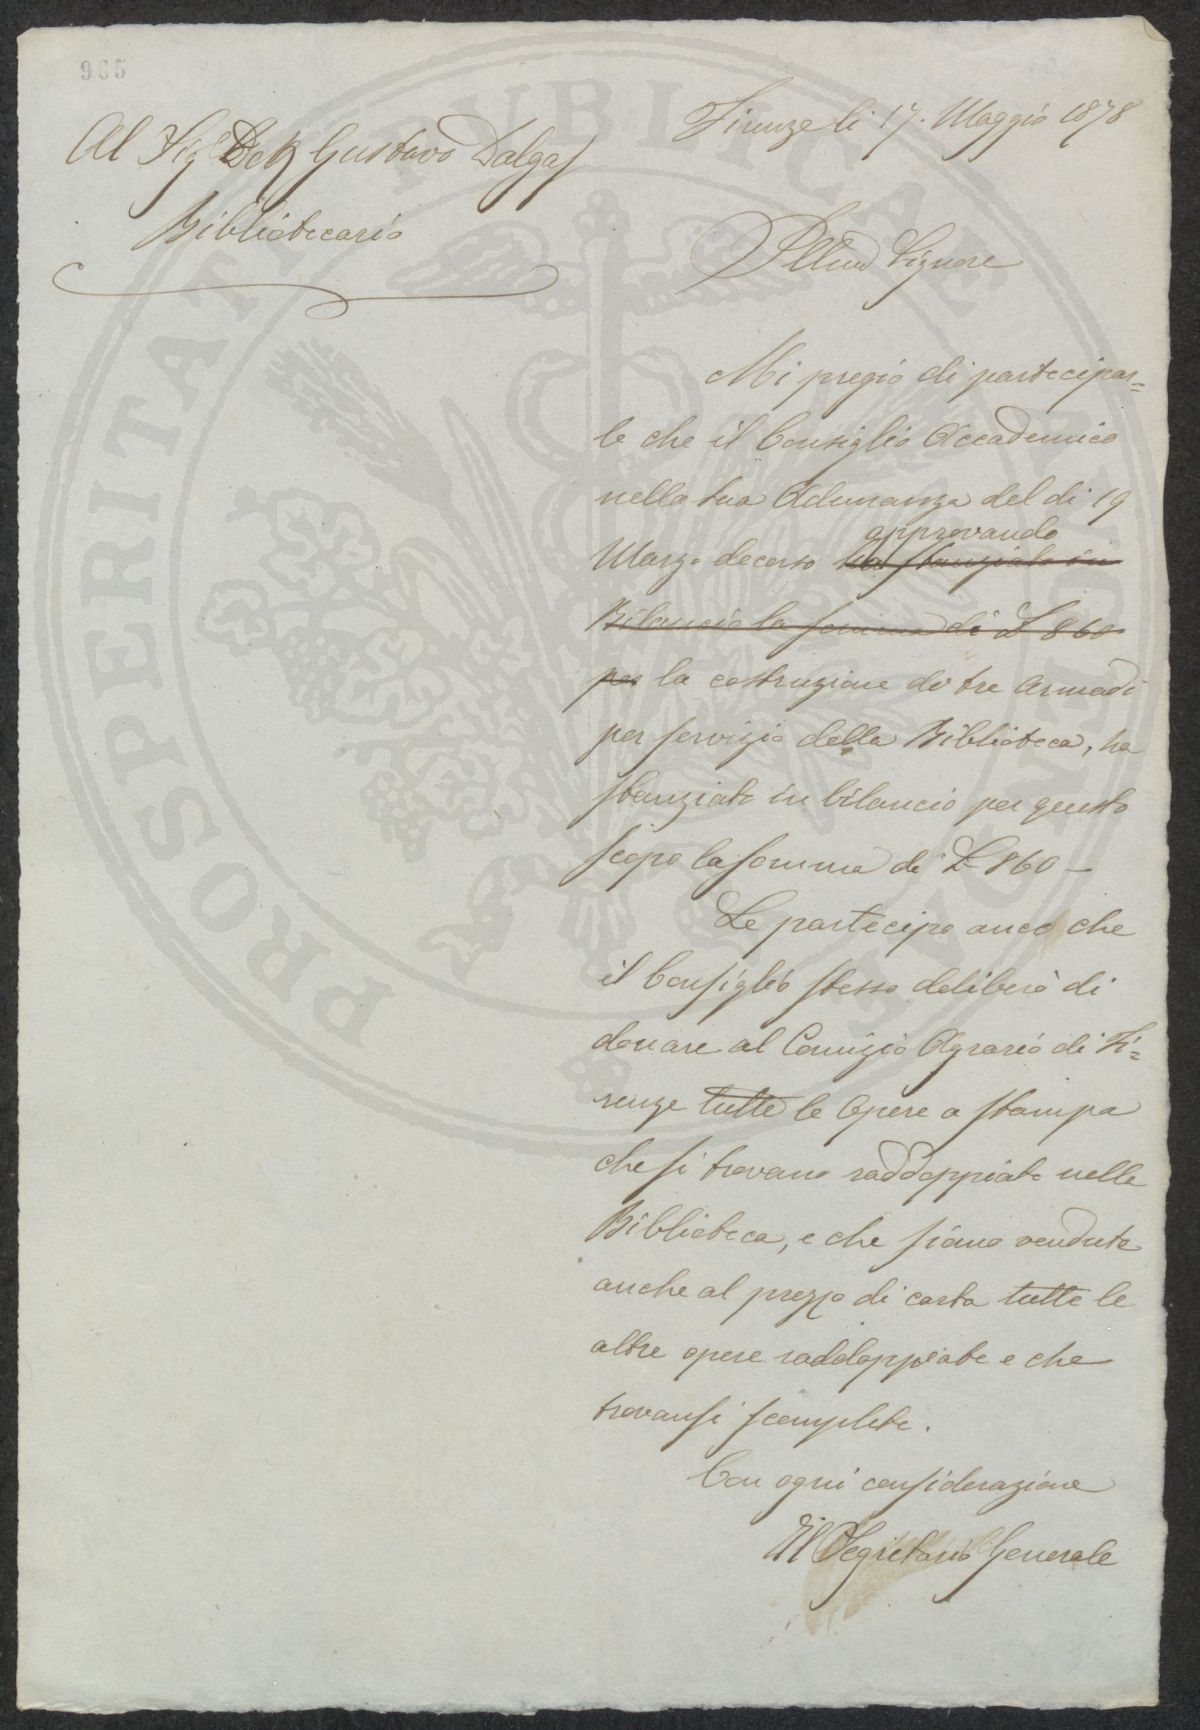 965
Firenze li 17. Maggio 1878
Al Sig Gustavo Dalgas
Bibliotecario
Illmo Signore
Mi pregio di partecipar=
le che il Consiglio Accademico
nella sua Adunanza del di 19
approvando
Marzo decorso ha stanziato in
Bilancio la somma di L 860
per la costruzione di tre armadi
per servizio della Biblioteca, ha
stanziato in bilancio per questo
scopo la somma di L 860 —
Le partecipo anco che
il Consiglio stesso deliberò di
donare al Comizio Agrario di Fi=
renze tutte le Opere a stampa
che si trovano raddoppiate nella
Biblioteca, e che siano vendute
anche al prezzo di carta tutte le
altre opere raddoppiate e che
trovansi scomplete.
Con ogni considerazione
Il Segretario Generale
PROSPERITATI PUBLICAE AUGENDAE